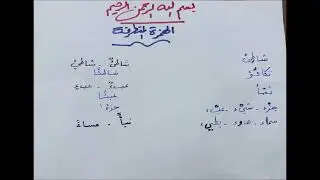 بسم الله الرحمن الرحيم
الهمزة المتطرفة
شاطئ
تكافؤ
نبأ
جزء - شيء - عبء
سماء - هدوء - بطيء
شاطئٌ - شاطئٍ
شاطئًا
عبءٌ - عبءٍ
عبئًا
جزءا
نبأً - مساءً